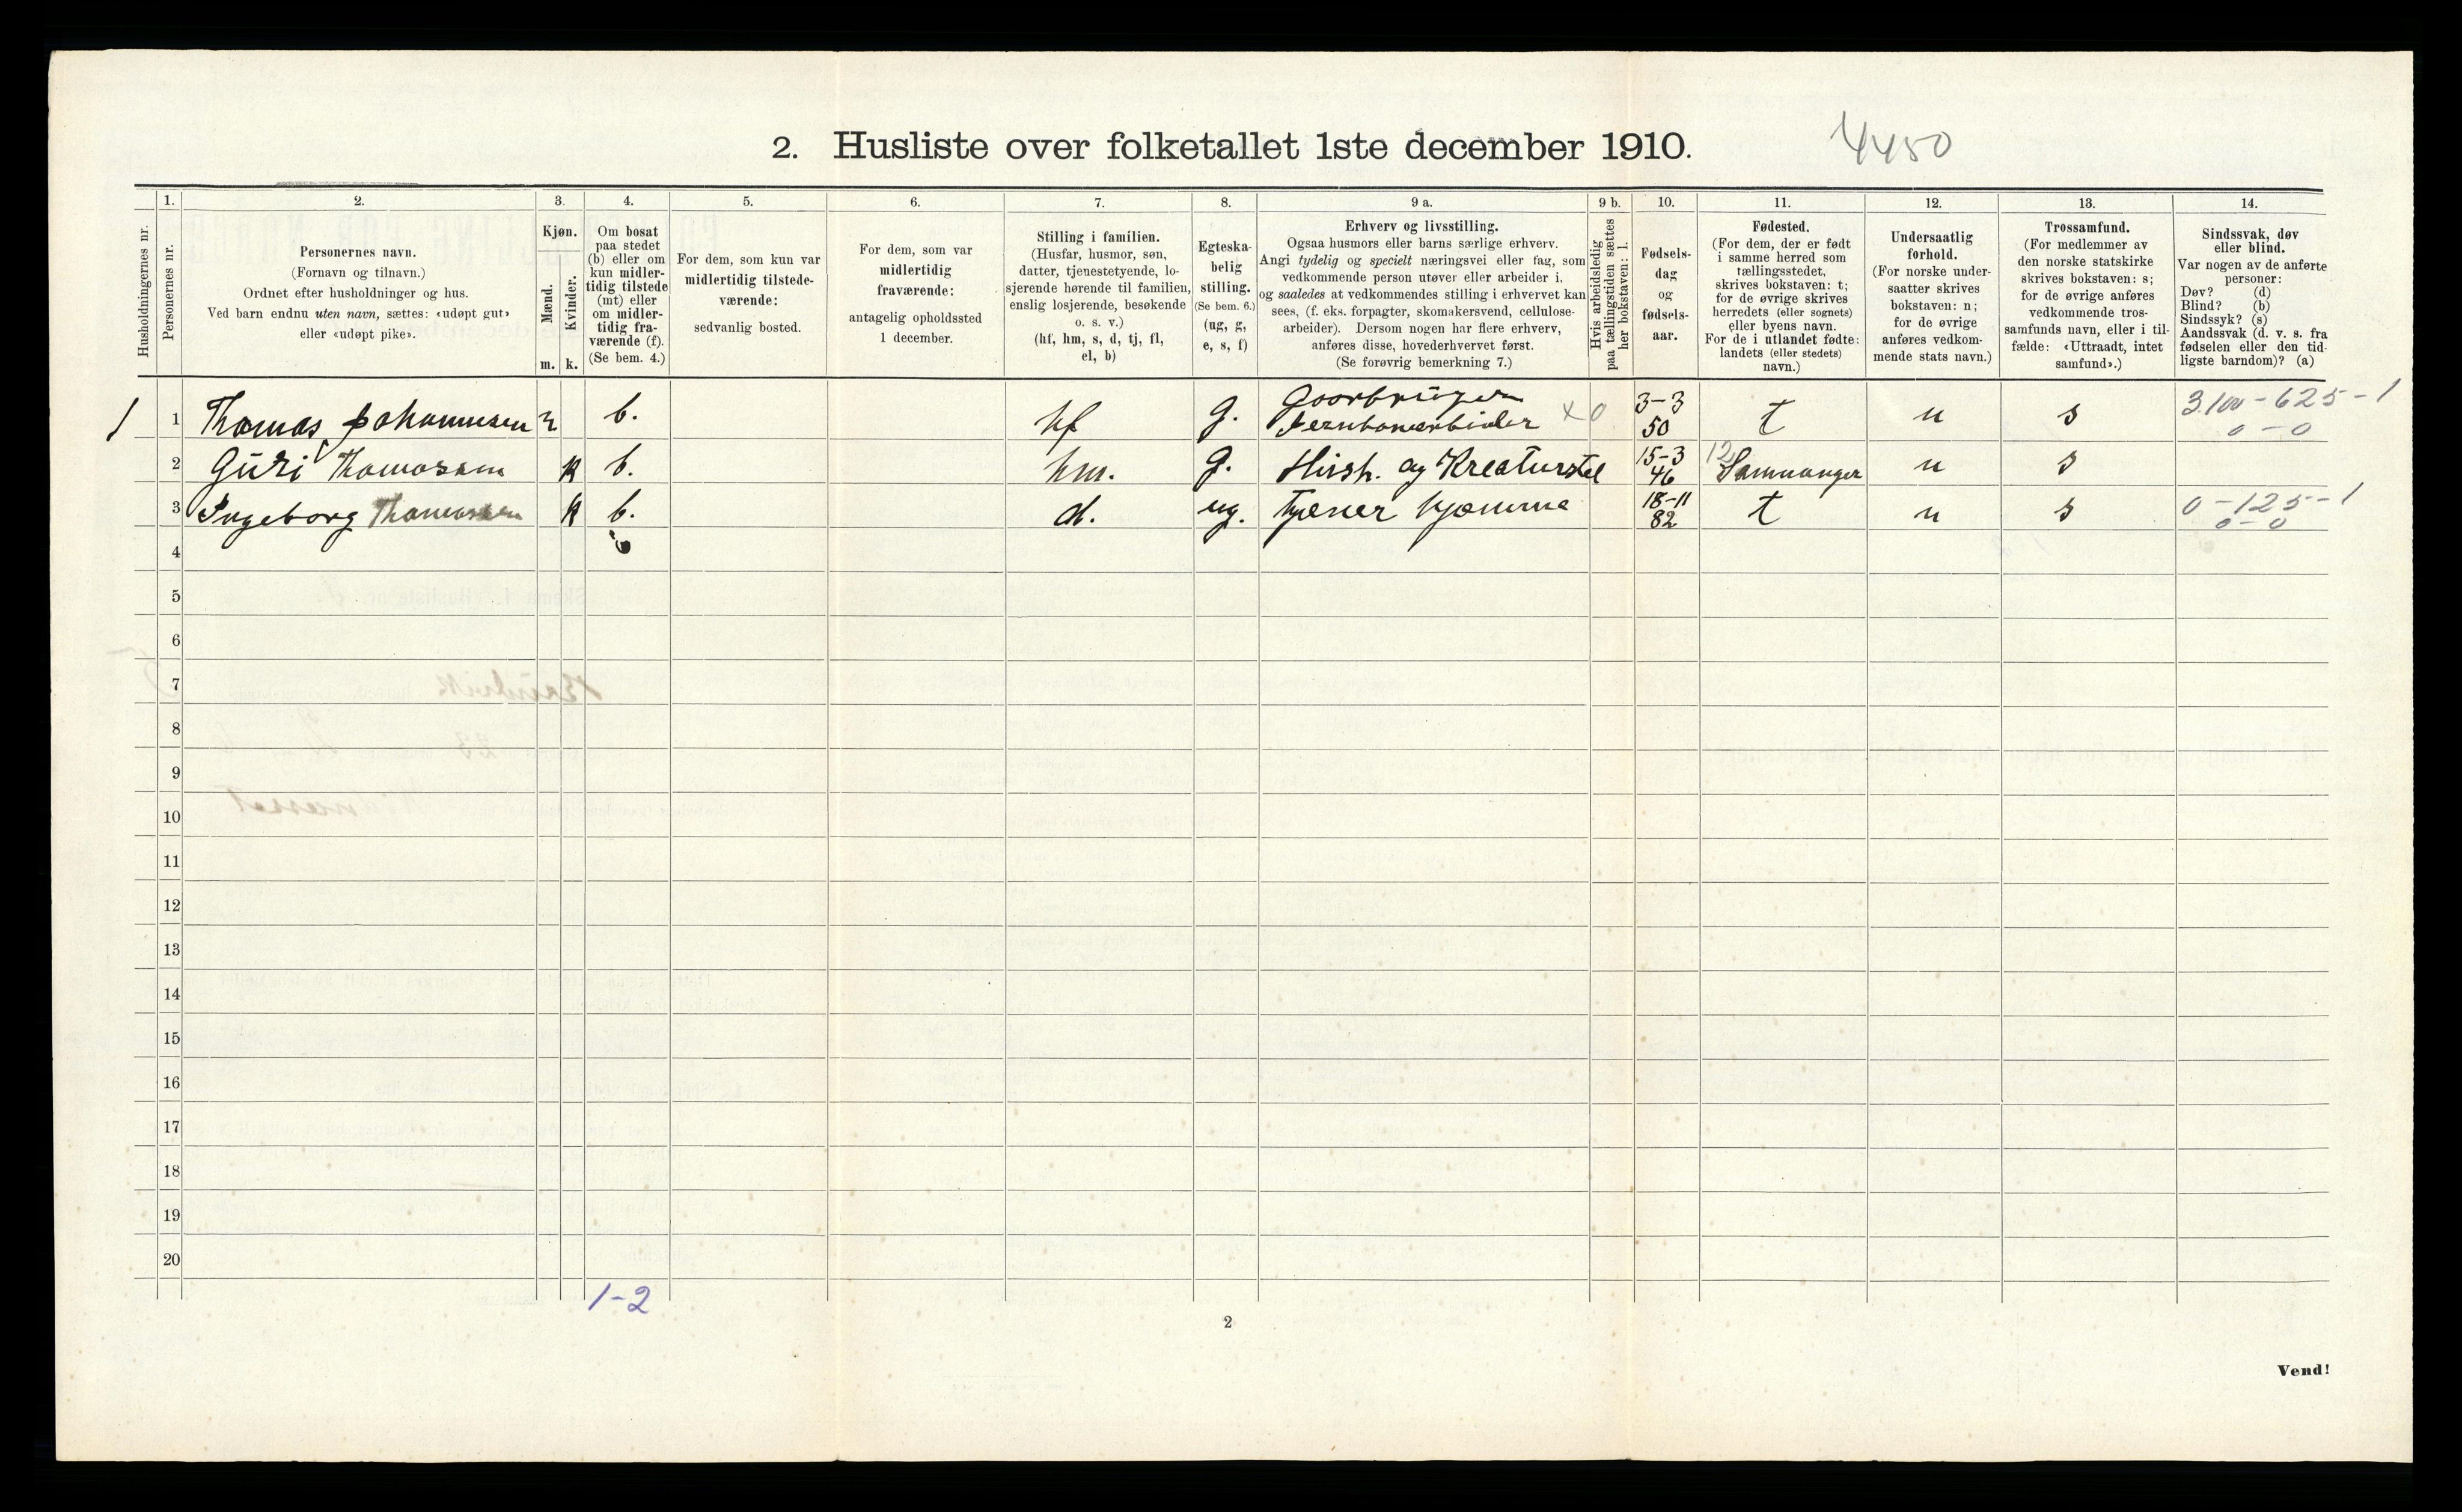 2. Husliste over folketallet 1ste december 1910.
4450
Husholdningernes nr.
1.
Personernes nr.
2.
Personernes navn.
(Fornavn og tilnavn.)
Ordnet efter husholdninger og hus.
Ved barn endnu uten navn, sættes: «udøpt gut»
eller «udøpt pike».
3.
Kjøn.
Mænd.
Kvinder.
m. k.
4.
Om bosat
paa stedet
(b) eller om
kun midler-
tidig tilstede
(mt) eller
om midler-
tidig fra-
værende (f).
(Se bem. 4.)
5.
For dem, som kun var
midlertidig tilstede-
værende:
sedvanlig bosted.
6.
For dem, som var
midlertidig
fraværende:
antagelig opholdssted
1 december.
7.
Stilling i familien.
(Husfar, husmor, søn,
datter, tjenestetyende, lo-
sjerende hørende til familien,
enslig losjerende, besøkende
o. s. v.)
(hf, hm, s, d, tj, fl,
el, b)
8.
Egteska-
belig
stilling.
(Se bem. 6.)
(ug, g,
e, s, f)
9 a.
Erhverv og livsstilling.
Ogsaa husmors eller barns særlige erhverv.
Angi tydelig og specielt næringsvei eller fag, som
vedkommende person utøver eller arbeider i,
og saaledes at vedkommendes stilling i erhvervet kan
sees, (f. eks. forpagter, skomakersvend, cellulose-
arbeider). Dersom nogen har flere erhverv,
anføres disse, hovederhvervet først.
(Se forøvrig bemerkning 7.)
9 b.
Hvis arbeidsledig
paa tællingstiden sættes
her bokstaven: l.
10.
Fødsels-
dag
og
fødsels-
aar.
11.
Fødested.
(For dem, der er født
i samme herred som
tællingsstedet,
skrives bokstaven: t;
for de øvrige skrives
herredets (eller sognets)
eller byens navn.
For de i utlandet fødte:
landets (eller stedets)
navn.)
12.
Undersaatlig
forhold.
(For norske under-
saatter skrives
bokstaven: n;
for de øvrige
anføres vedkom-
mende stats navn.)
13.
Trossamfund.
(For medlemmer av
den norske statskirke
skrives bokstaven: s;
for de øvrige anføres
vedkommende tros-
samfunds navn, eller i til-
fælde: «Uttraadt, intet
samfund».)
14.
Sindssvak, døv
eller blind.
Var nogen av de anførte
personer:
Døv? (d)
Blind? (b)
Sindssyk? (s)
Aandssvak (d. v. s. fra
fødselen eller den tid-
ligste barndom)? (a)
1 1 Thomas Johannesen m b. hf g. Goorbrüger Jernbanearbeider x0 3-3 50 t n s 3.100-625-1 0-0
2 Güri Thomasen k b. hm. g. Hush. og Kreaturstel 15-3 46 12 Samnanger n s
3 Ingeborg Thomassen k b. d. ug. tjener hjemme 18-11 82 t n s 0-125-1 0-0
4
5
6
7
8
9
10
11
12
13
14
15
16
17
18
19
20
1-2
2
Vend!